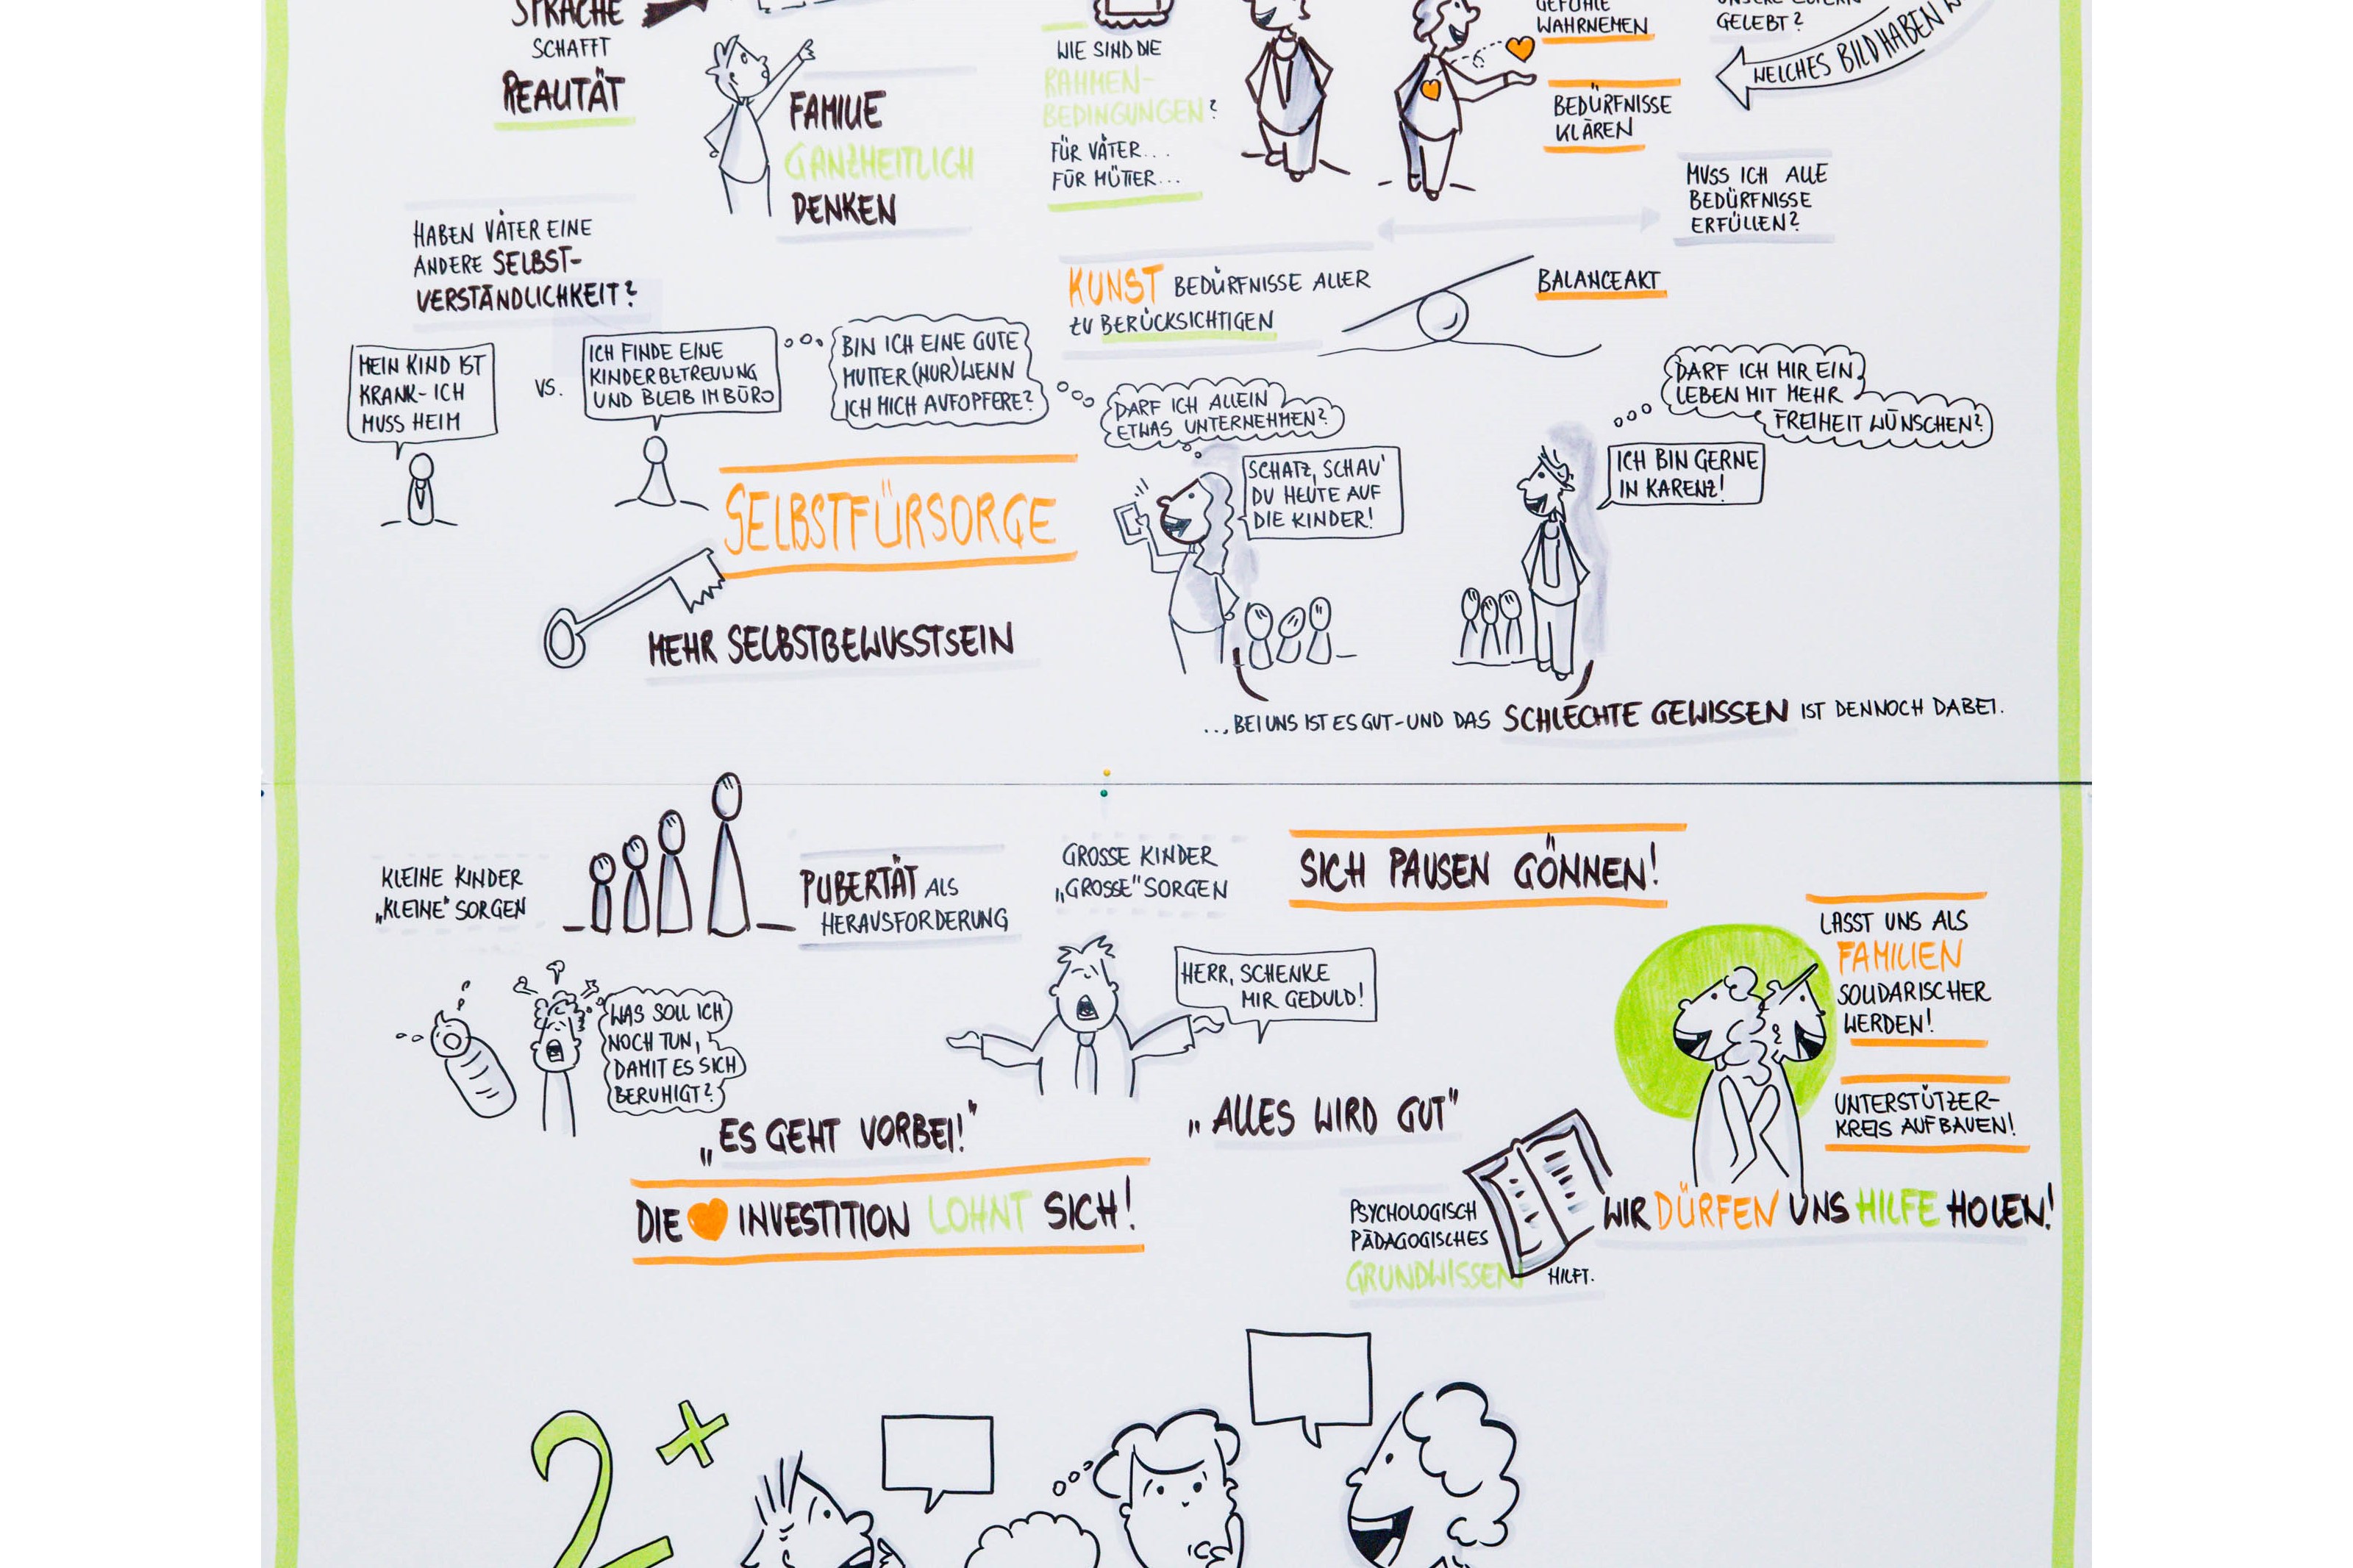 SPRACHE
SCHAFFT
REALITÄT
FAMILIE
GANZHEITLICH
DENKEN
WIE SIND DIE
RAHMEN-
BEDINGUNGEN?
FÜR VÄTER...
FÜR MÜTTER...
GEFÜHLE
WAHRNEMEN
BEDÜRFNISSE
KLÄREN
UNSERE ELTERN
GELEBT?
WELCHES BILD HABEN
MUSS ICH ALLE
BEDÜRFNISSE
ERFÜLLEN?
HABEN VÄTER EINE
ANDERE SELBST-
VERSTÄNDLICHKEIT?
KUNST BEDÜRFNISSE ALLER
ZU BERÜCKSICHTIGEN
BALANCEAKT
MEIN KIND IST
KRANK - ICH
MUSS HEIM
VS.
ICH FINDE EINE
KINDERBETREUUNG
UND BLEIB IM BÜRO
BIN ICH EINE GUTE
MUTTER (NUR) WENN
ICH MICH AUFOPFERE?
DARF ICH ALLEIN
ETWAS UNTERNEHMEN?
SCHATZ, SCHAU'
DU HEUTE AUF
DIE KINDER!
DARF ICH MIR EIN
LEBEN MIT MEHR
FREIHEIT WÜNSCHEN?
ICH BIN GERNE
IN KARENZ!
SELBSTFÜRSORGE
MEHR SELBSTBEWUSSTSEIN
..., BEI UNS IST ES GUT - UND DAS SCHLECHTE GEWISSEN IST DENNOCH DABEI.
KLEINE KINDER
„KLEINE" SORGEN
PUBERTÄT ALS
HERAUSFORDERUNG
GROSSE KINDER
„GROSSE" SORGEN
SICH PAUSEN GÖNNEN!
WAS SOLL ICH
NOCH TUN,
DAMIT ES SICH
BERUHIGT?
HERR, SCHENKE
MIR GEDULD!
LASST UNS ALS
FAMILIEN
SOLIDARISCHER
WERDEN!
UNTERSTÜTZER-
KREIS AUFBAUEN!
„ES GEHT VORBEI!"
„ALLES WIRD GUT"
DIE INVESTITION LOHNT SICH!
PSYCHOLOGISCH
PÄDAGOGISCHES
GRUNDWISSEN HILFT.
WIR DÜRFEN UNS HILFE HOLEN!
2+